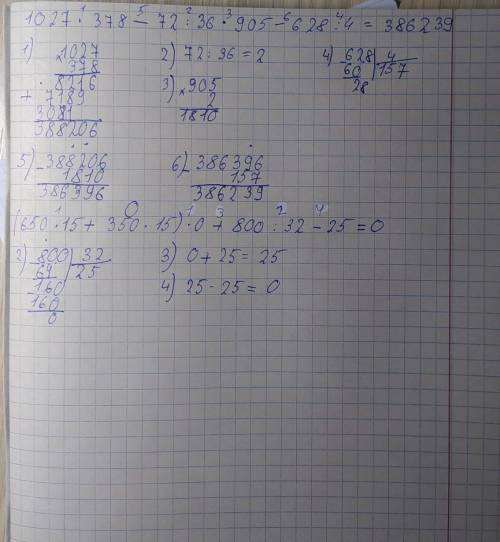 1027 · 378 − 72 : 36 · 905 − 628 : 4 = 386239
1) × 1027
378
8216
+ 7189
3081
388206
2) 72 : 36 = 2
3) × 905
2
1810
4) 628 | 4
60 | 157
28
5) − 388206
1810
386396
6) − 386396
157
386239
(650 · 15 + 350 · 15) · 0 + 800 : 32 − 25 = 0
2) − 800 | 32
64 | 25
− 160
160
0
3) 0 + 25 = 25
4) 25 − 25 = 0